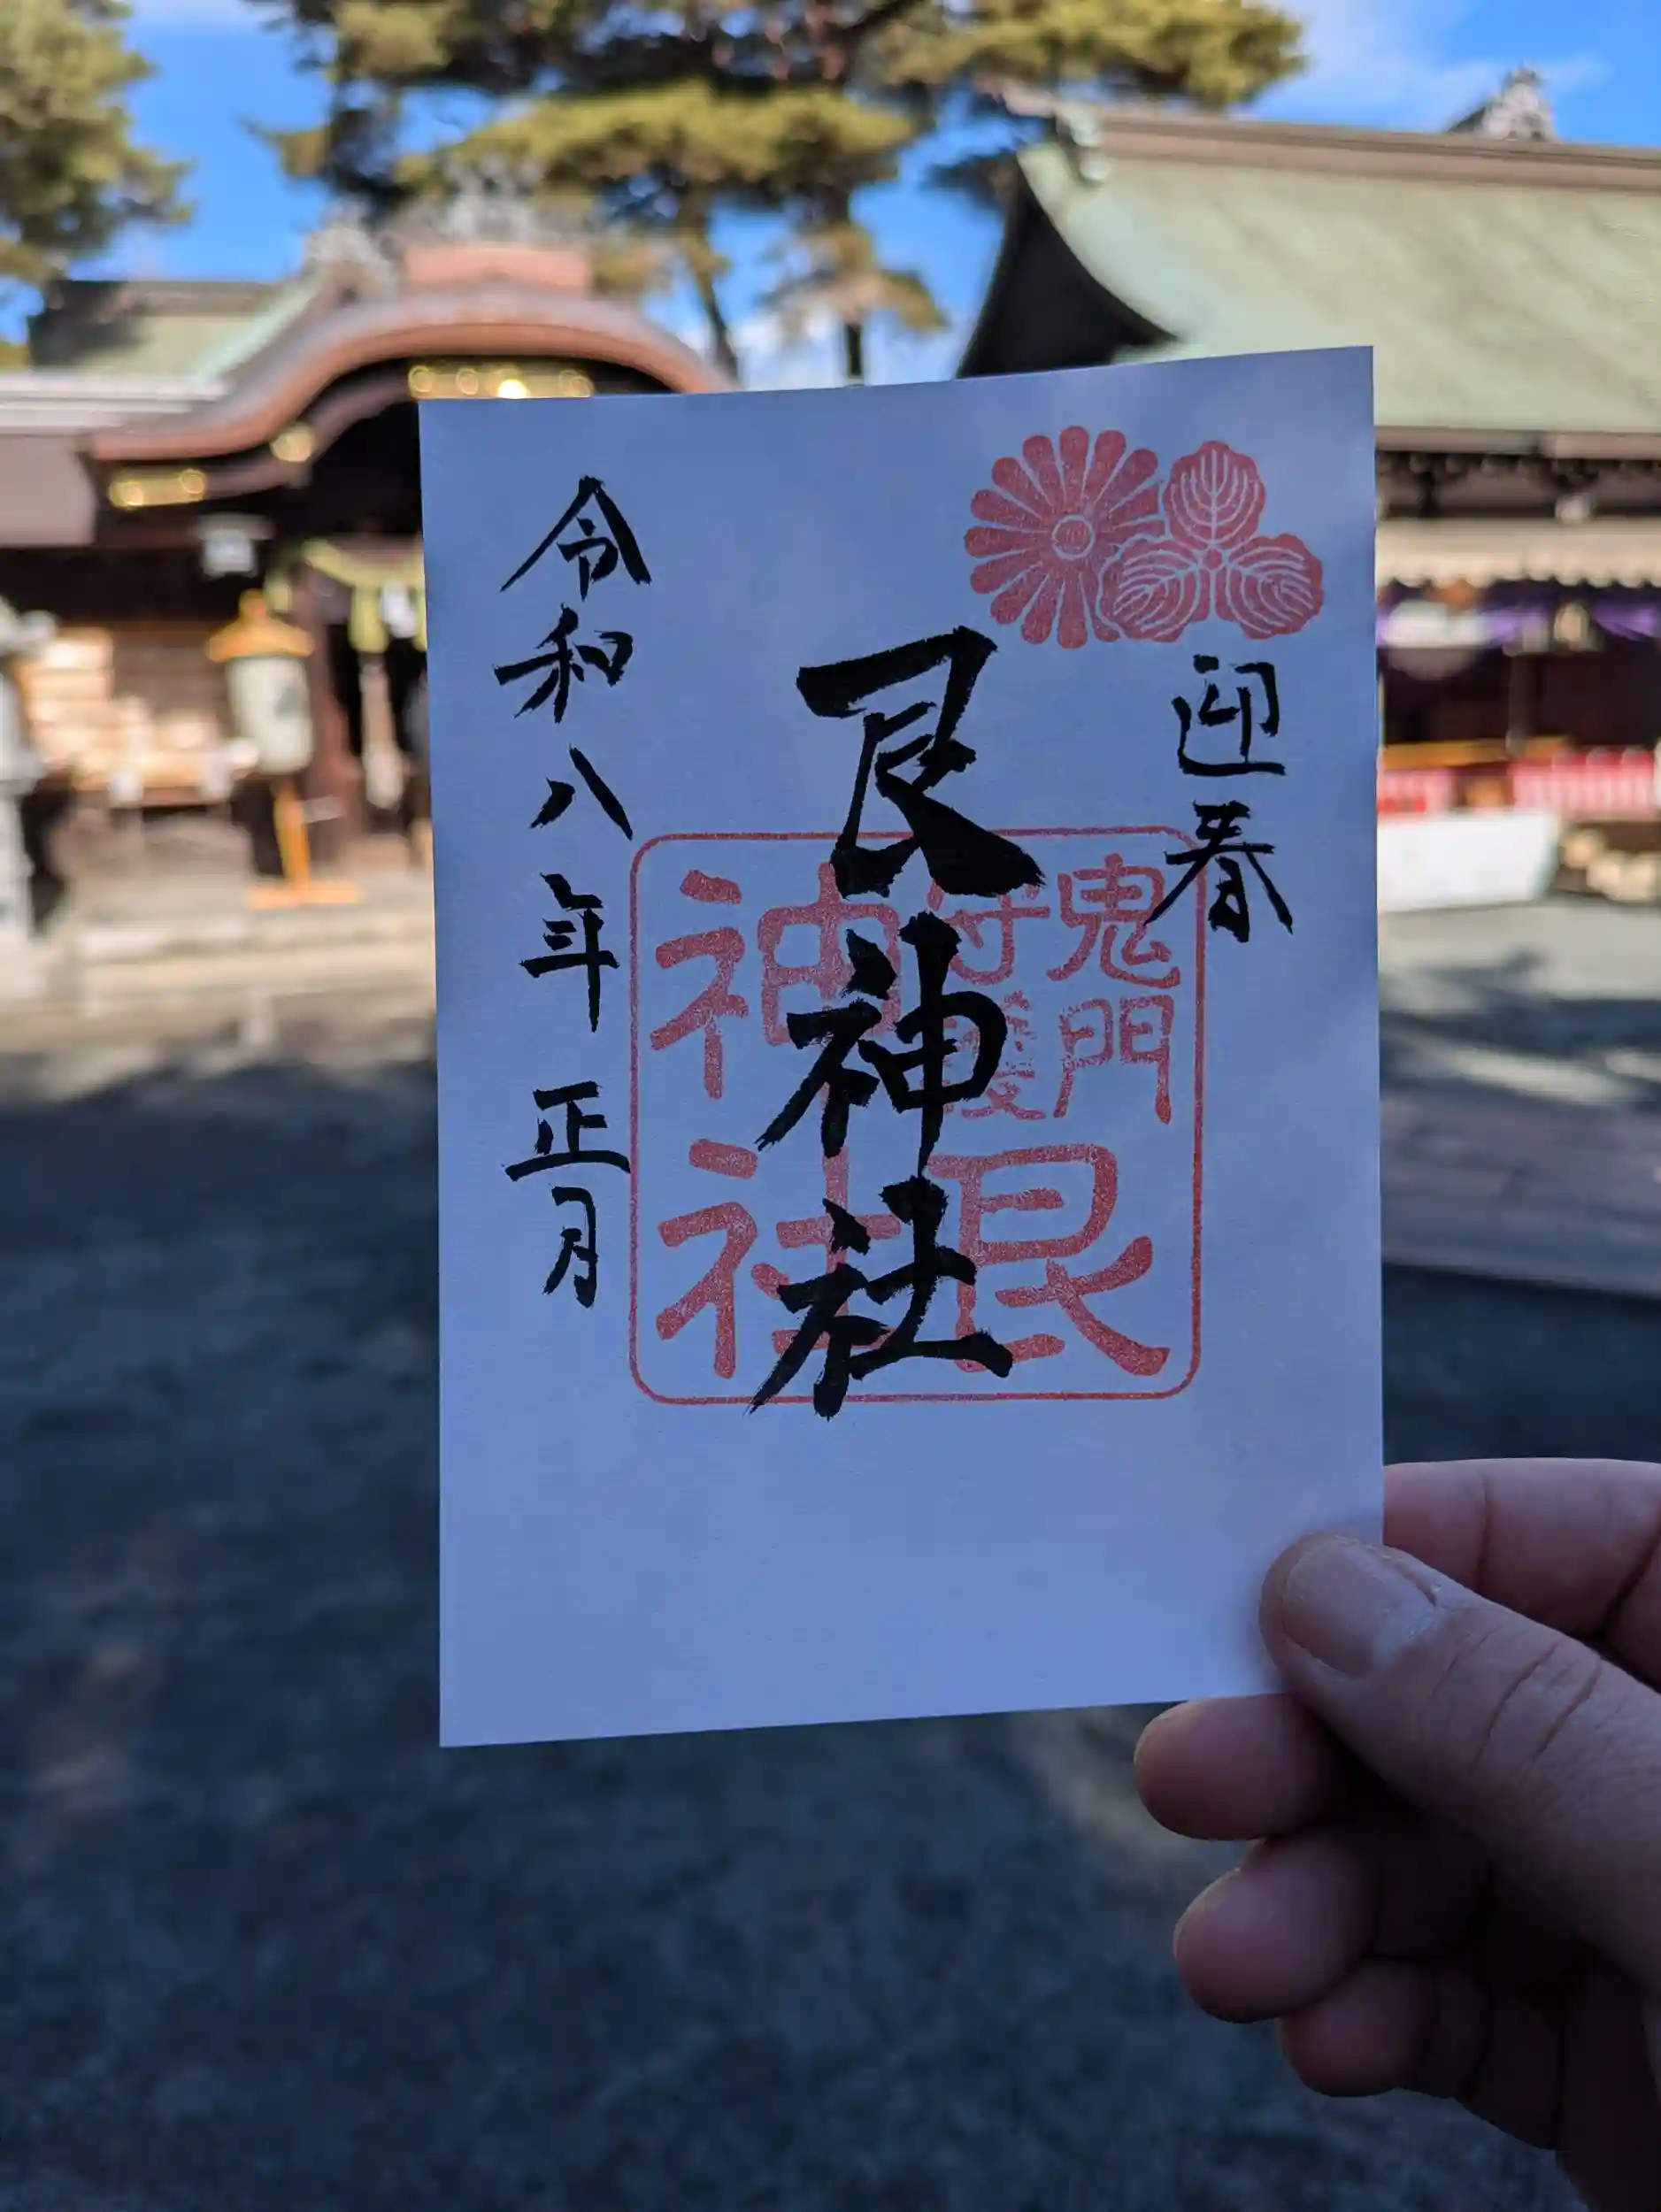 迎春
艮神社
令和八年 正月
鬼門
守護
艮
神社